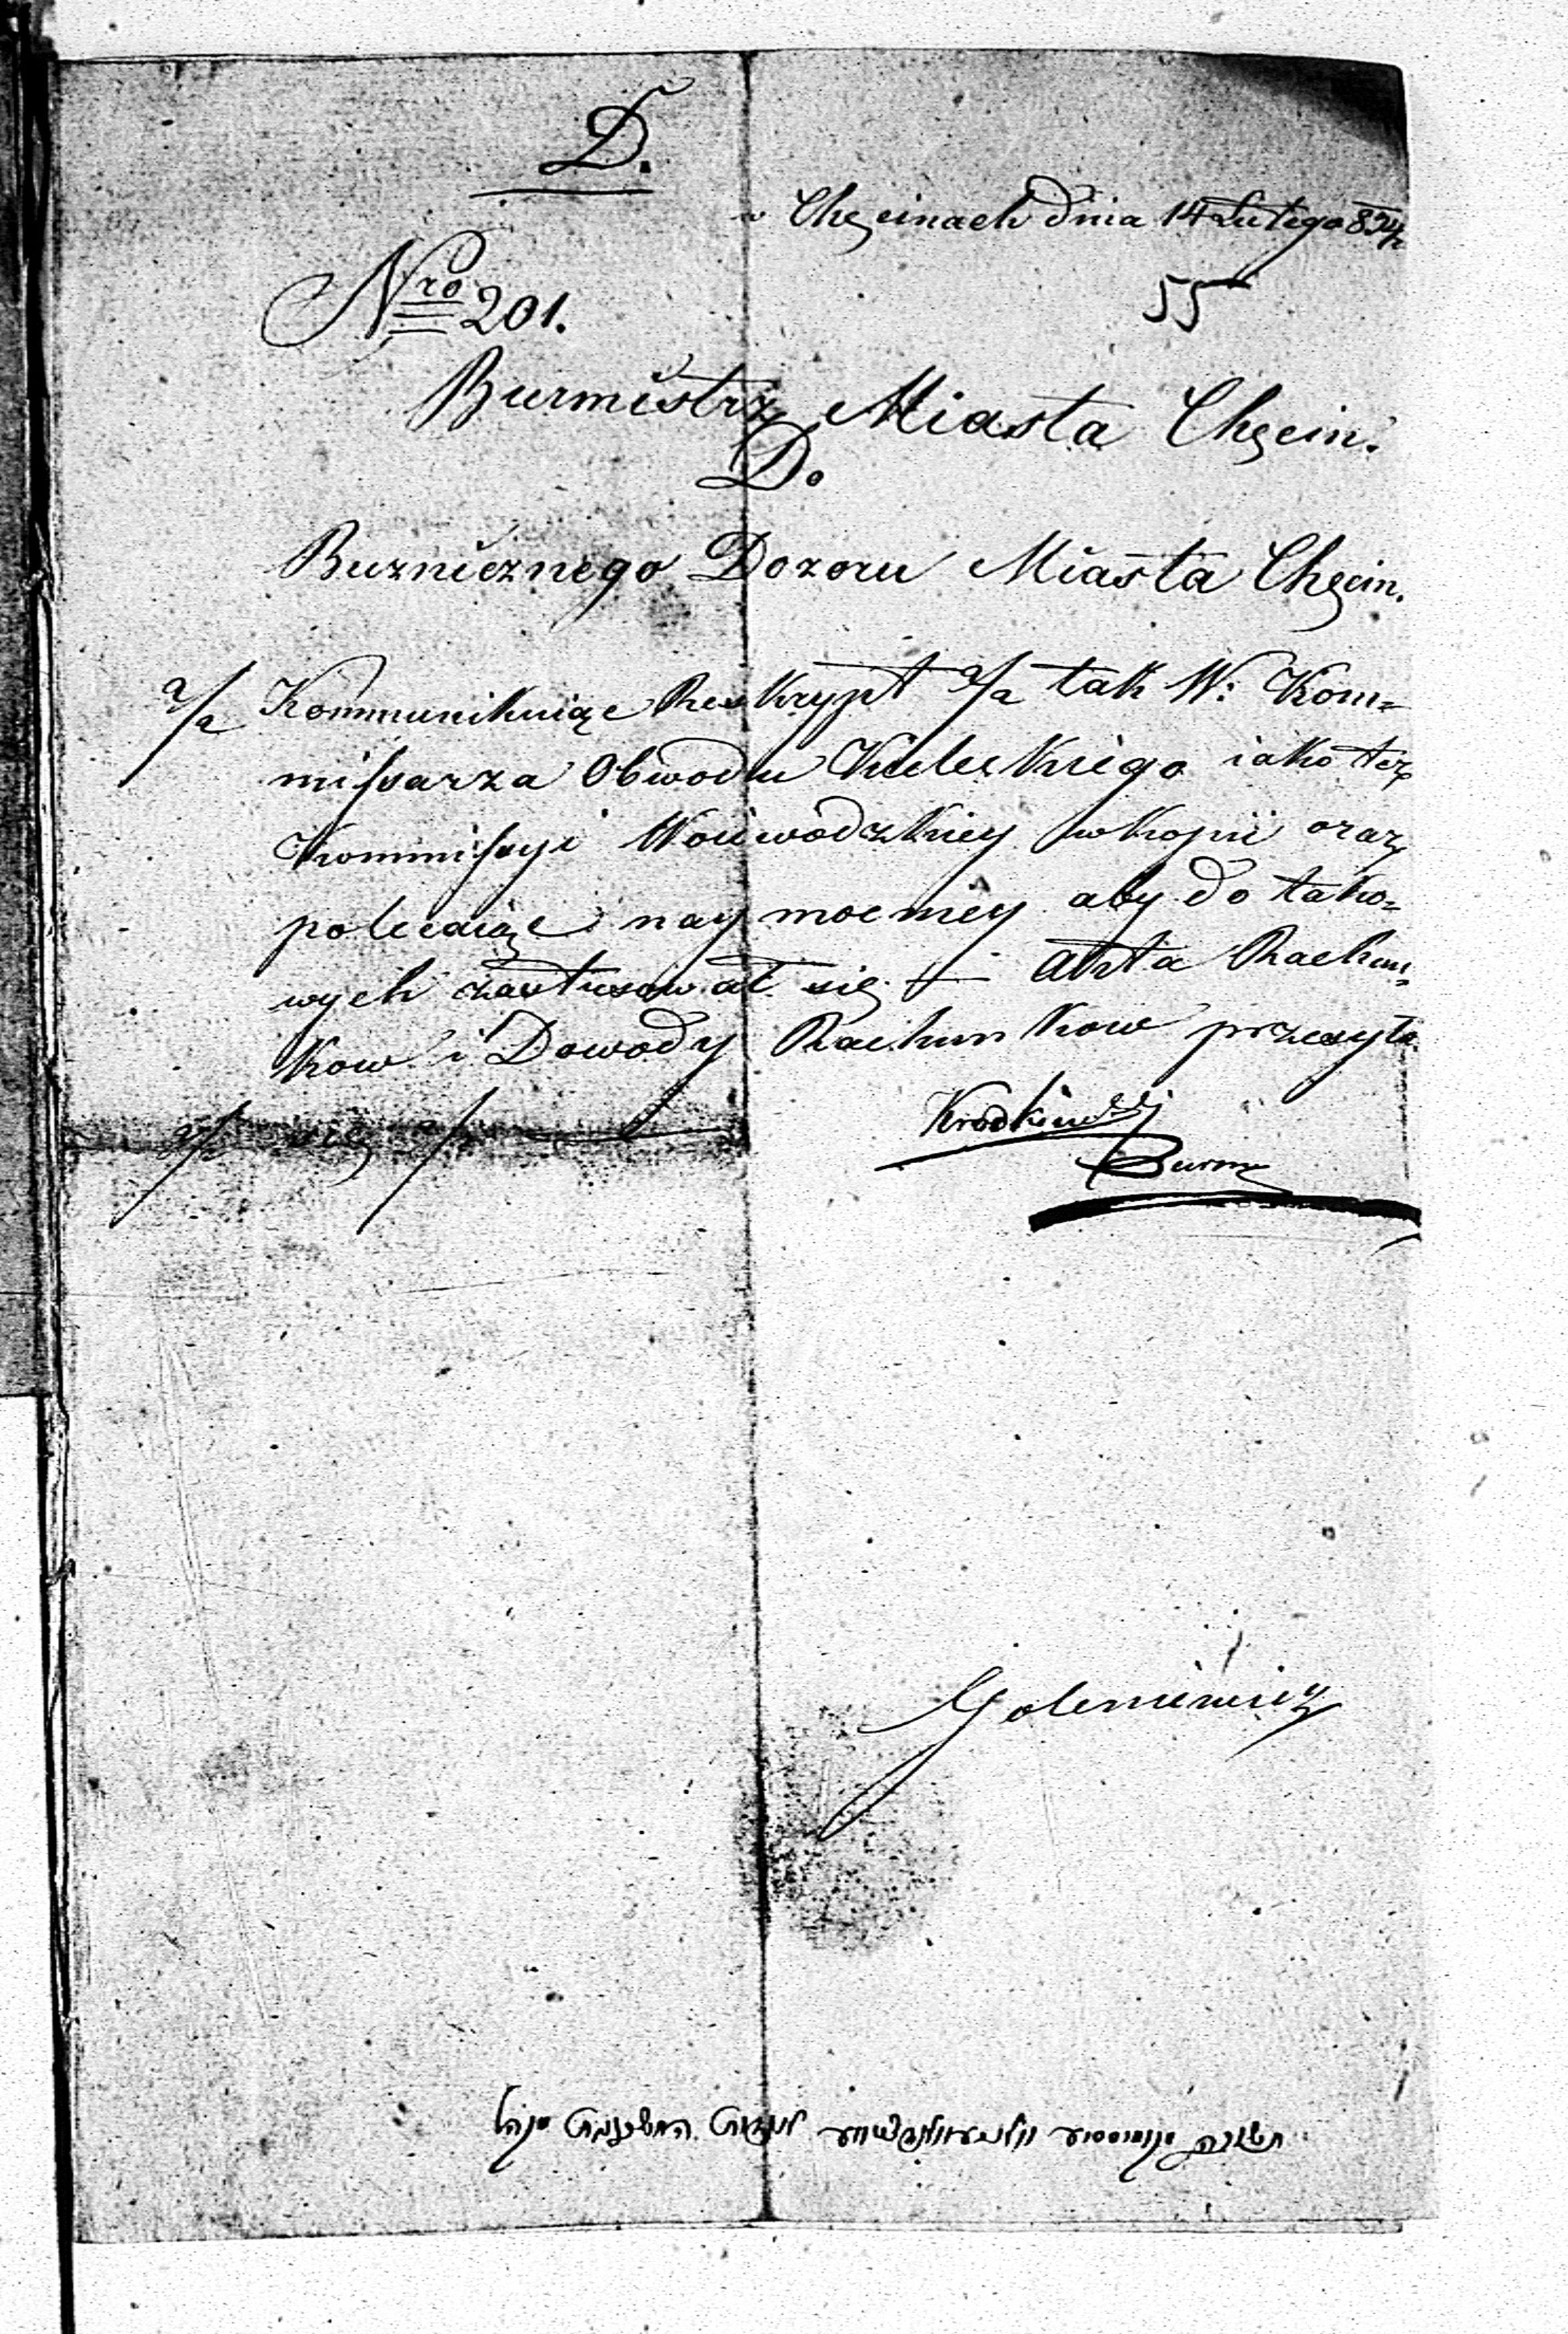 D.
w Chęcinach dnia 14 Lutego 824
Nro 201.
55
Burmistrz Miasta Chęcin.
Do
Buznicznego Dozoru Miasta Chęcin.
a/a Kommunikuiąc Reskrypt a/a tak W: Kom=
missarza Obwodu Kieleckiego iako też
Kommissyi Woiewodzkiey w kopii oraz
polecaiąc naymocniey aby do tako=
wych zastusował się — Akta Rachun=
kow i Dowody Rachunkow przesyła
a/a się a/a
Burm
Goleniewicz